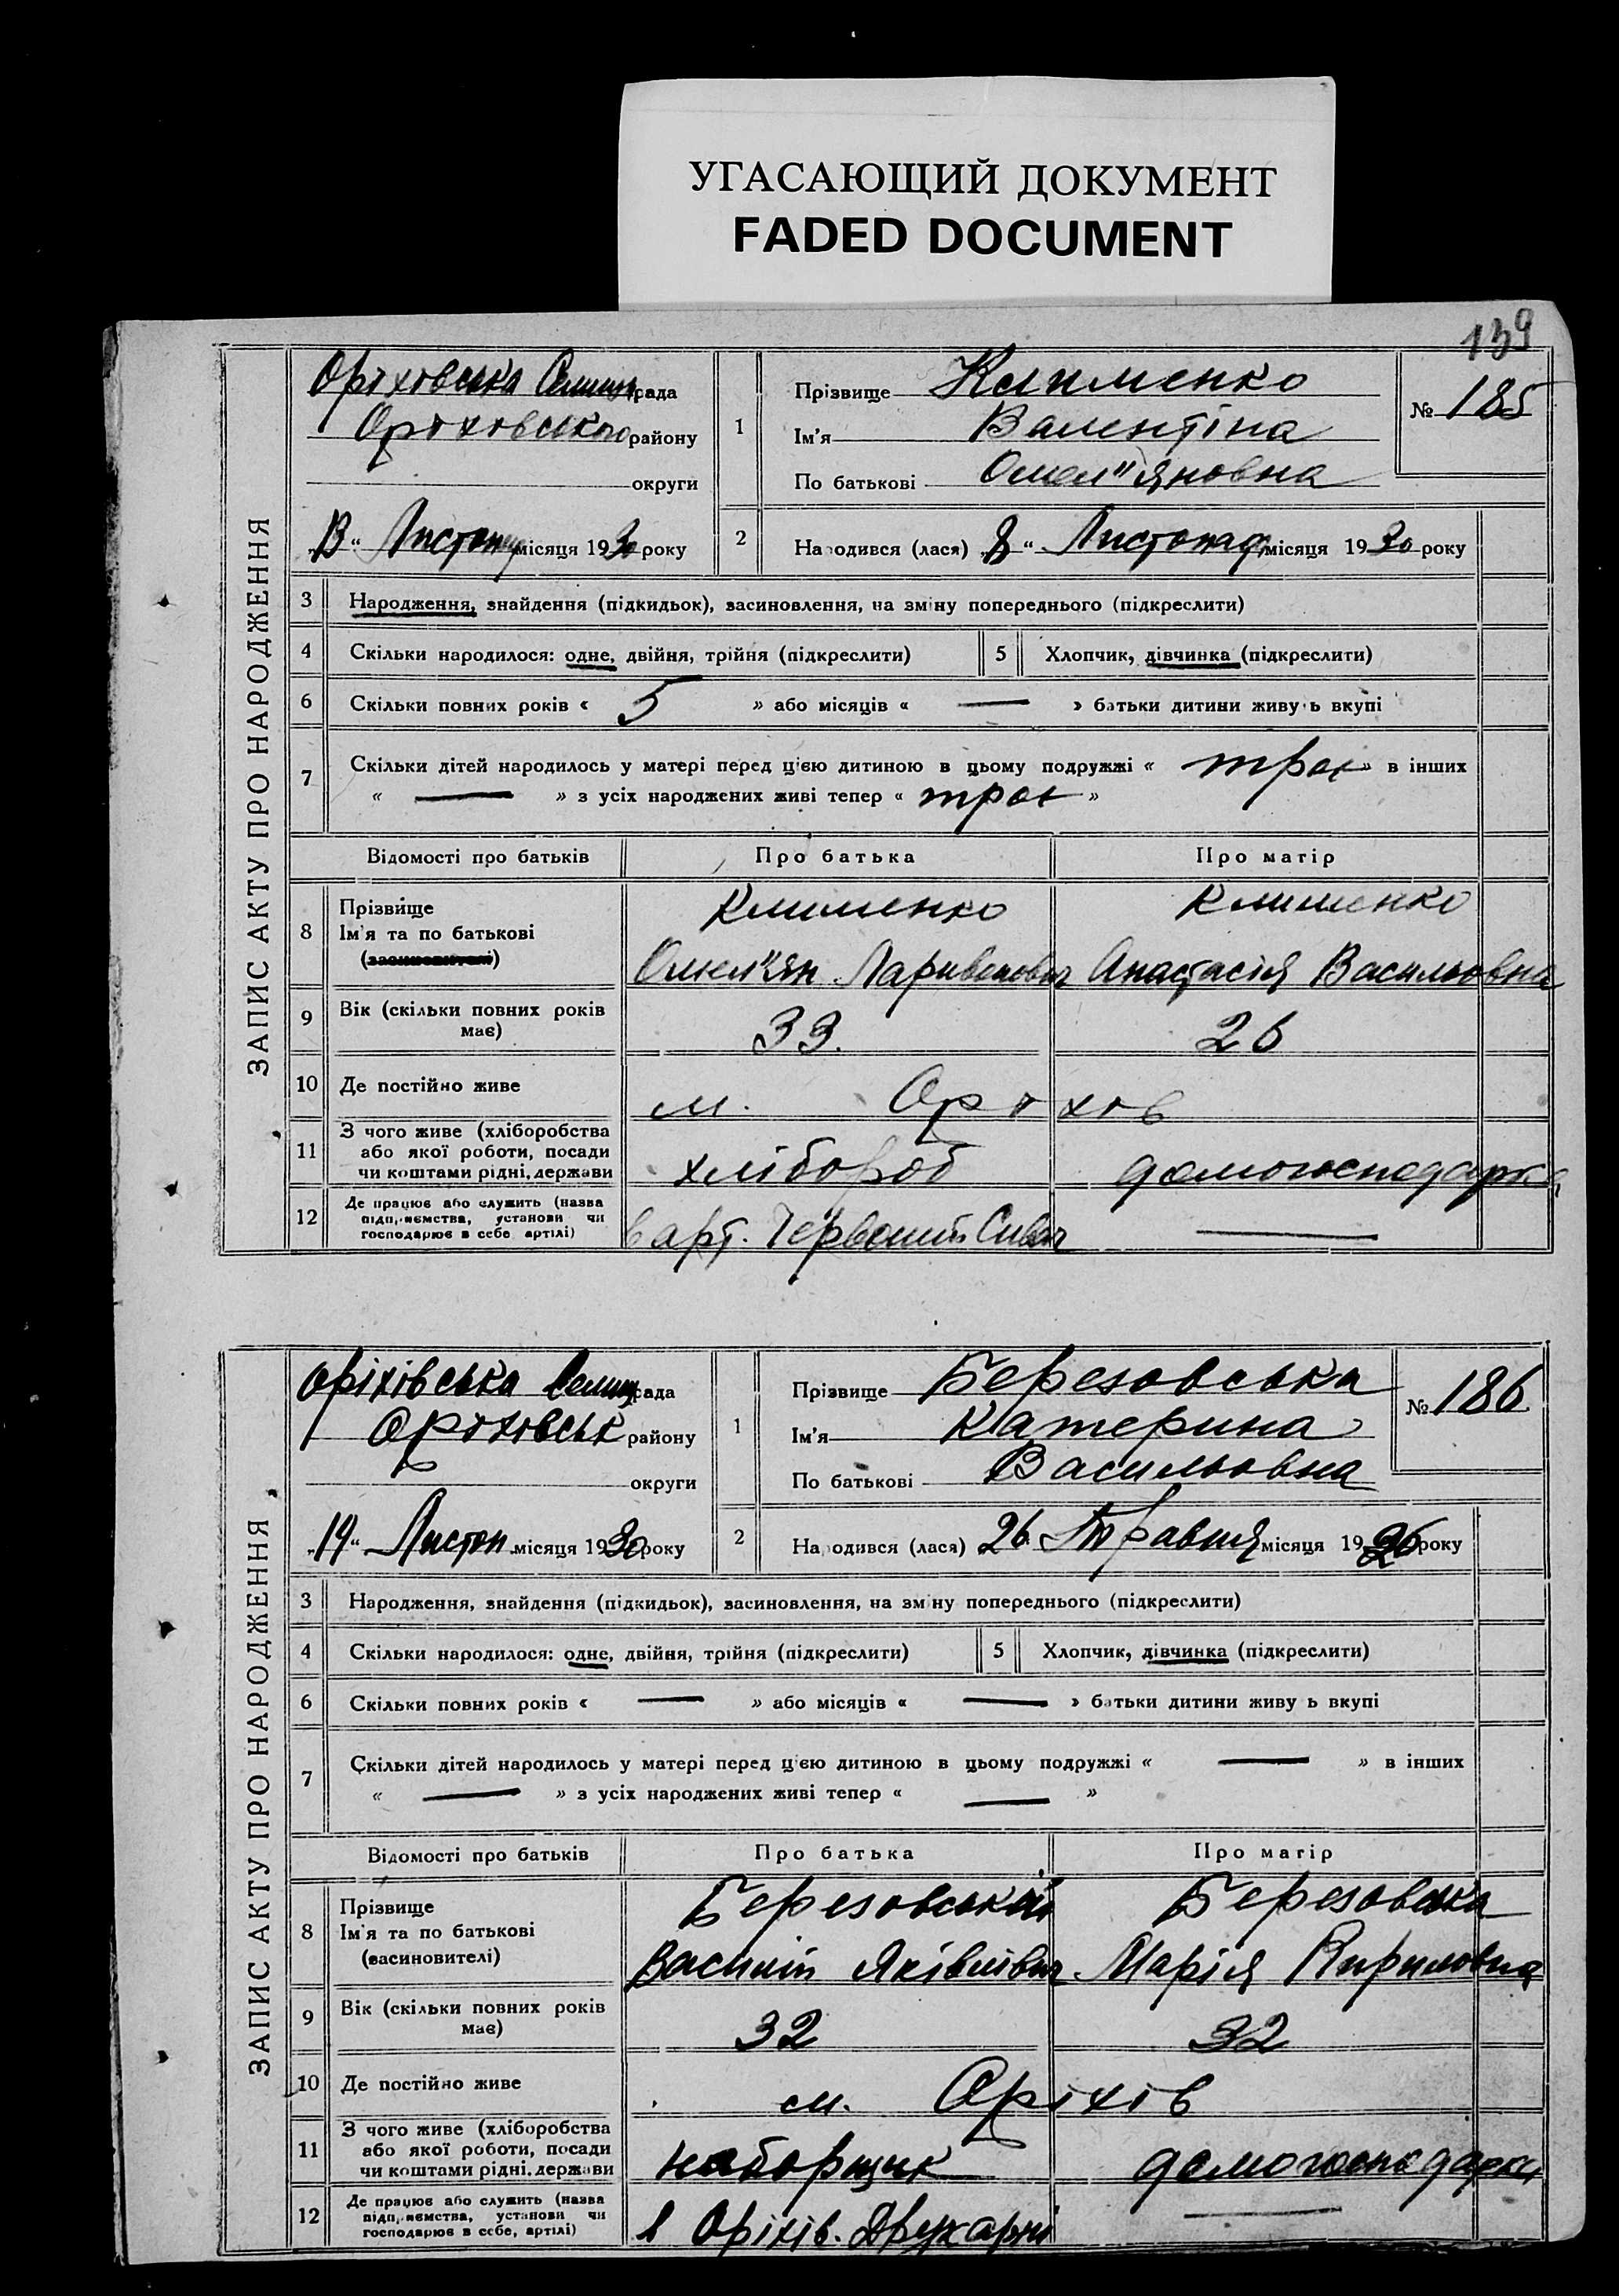 УГАСАЮЩИЙ ДОКУМЕНТ
FADED DOCUMENT
139
ЗАПИС АКТУ ПРО НАРОДЖЕННЯ
Оріховська Селищ рада
Оріховського району
округи
„13“ Листопад місяця 1930 року
1
Прізвище Клименко
Ім'я Валентіна
По батькові Омел"яновна
№ 185
2
Народився (лася) „8“ Листопад місяця 1930 року
3 Народження, знайдення (підкидьок), засиновлення, на зміну попереднього (підкреслити)
4 Скільки народилося: одне, двійня, трійня (підкреслити) 5 Хлопчик, дівчинка (підкреслити)
6 Скільки повних років « 5 » або місяців « — » батьки дитини живуть вкупі
7 Скільки дітей народилось у матері перед цією дитиною в цьому подружжі « троє » в інших
« — » з усіх народжених живі тепер « троє »
Відомості про батьків Про батька Про матір
8 Прізвище Клименко Клименко
Ім'я та по батькові
(засиновителі) Омел"ян Анастасія Васильовна
9 Вік (скільки повних років
має) 33. 26
10 Де постійно живе м. Оріхів
11 З чого живе (хліборобства
або якої роботи, посади
чи коштами рідні, держави хлібороб домогосподарка
12 Де працює або служить (назва
підприємства, установи чи
господарює в себе, артілі) в арт. Червоний —
ЗАПИС АКТУ ПРО НАРОДЖЕННЯ
Оріхівська Селищ рада
Оріхівськ району
округи
„19“ Листоп місяця 1930 року
1
Прізвище Березовська
Ім'я Катерина
По батькові Васильовна
№ 186
2
Народився (лася) 26 Травня місяця 1926 року
3 Народження, знайдення (підкидьок), засиновлення, на зміну попереднього (підкреслити)
4 Скільки народилося: одне, двійня, трійня (підкреслити) 5 Хлопчик, дівчинка (підкреслити)
6 Скільки повних років « — » або місяців « — » батьки дитини живуть вкупі
7 Скільки дітей народилось у матері перед цією дитиною в цьому подружжі « — » в інших
« — » з усіх народжених живі тепер « — »
Відомості про батьків Про батька Про матір
8 Прізвище Березовський Березовська
Ім'я та по батькові
(засиновителі) Василій Яківлівич Марія Кириловна
9 Вік (скільки повних років
має) 32 32
10 Де постійно живе м. Оріхів
11 З чого живе (хліборобства
або якої роботи, посади
чи коштами рідні, держави наборщик домогосподарка
12 Де працює або служить (назва
підприємства, установи чи
господарює в себе, артілі) в Оріхів. Друкарні —